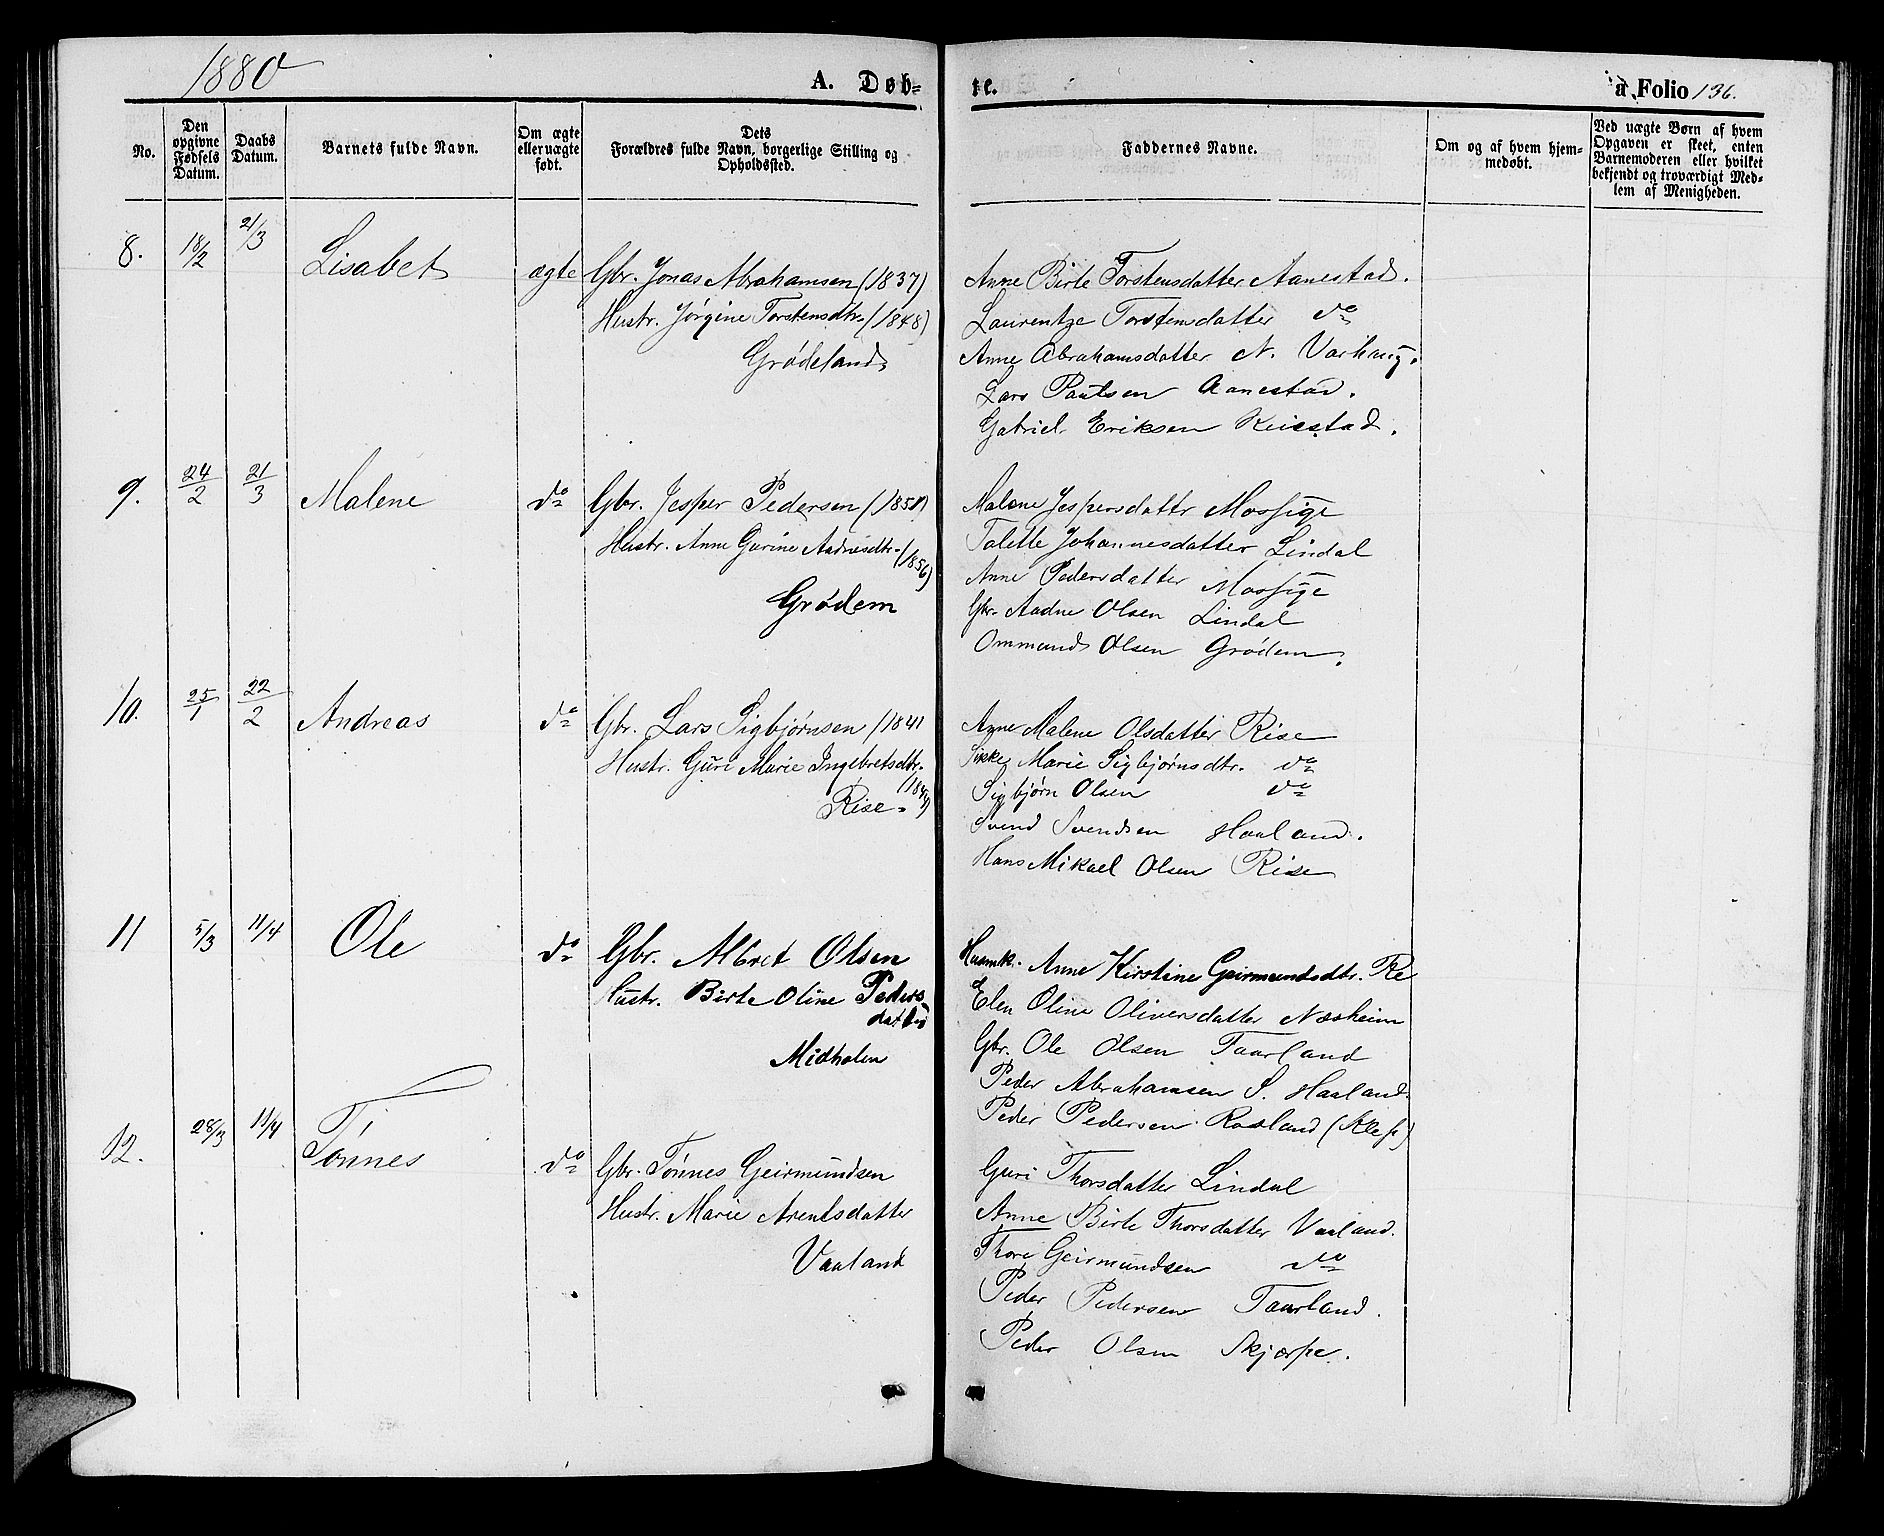 1880
A. Døb=
te.
a Folio 136.
No.
Den opgivne Fødsels Datum.
Daabs Datum.
Barnets fulde Navn.
Om ægte eller uægte født.
Dets Forældres fulde Navn, borgerlige Stilling og Opholdssted.
Faddernes Navne.
Om og af hvem hjem=medøbt.
Ved uægte Børn af hvem Opgaven er skeet, enten Barnemoderen eller hvilket bekjendt og troværdigt Med=lem af Menigheden.
8. 18/2 21/3 Lisabet ægte Gbr. Jonas Abrahamsen (1837)
Hustr. Jørgine Torstensdtr. (1848)
Grødeland
Anne Birte Torstensdatter Aanestad.
Laurentze Torstensdatter do
Anne Abrahamsdatter N. Varhaug.
Lars Paulsen Aanestad.
Gabriel Eriksen
9. 24/2 21/3 Malene do Gbr. Jesper Pedersen
Hustr. Anne Gurine Aadnesdtr. (1856)
Grødem
Malene Jespersdattr Mossige
Tolette Johannesdatter Lindal
Anne Pedersdatter Mossige
Gbr. Aadne Olsen Lindal
Ommund Olsen Grødem.
10. 25/1 22/2 Andreas do Gbr. Lars Sigbjørnsen (1841
Hustr. Guri Marie Ingebretsdtr.
Rise
Anne Malene Olsdatter Rise
Sikke Marie Sigbjørnsdtr. do
Sigbjørn Olsen do
Svend Svendsen Haaland.
Hans Mikael Olsen Rise
11 5/3 11/4 Ole do Gbr. Albret Olsen
Hustr. Birte Oline Peders
datter
Midholen
Husmk. Anne Kirstine Geirmundsdtr. Re
Elen Oline Oliversdatter Næsheim
Gbr. Ole Olsen Taarland
Peder Abrahamsen S. Haaland.
Peder Pedersen Rosland (Klep)
12. 28/3 11/4 Tønnes do Gbr. Tønnes Geirmundsen
Hustr. Marie Arentsdatter
Vaaland
Guri Thorsdatter Lindal
Anne Birte Thorsdatter Vaaland.
Thore Geirmundsen do
Peder Pedersen Taarland.
Peder Olsen Skjærpe.